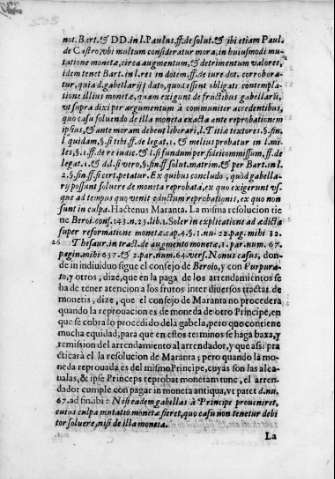 not. Bart. & DD. in l. Paulus. ff. de solut. & ibi etiam Paul.
de Castro, vbi multum consideratur mora, in huiusmodi mu-
tatione monetæ, circa augmentum, & detrimentum valores,
idem tenet Bart. in l. res in dotem. ff. de iure dot. corrobora-
tur, quia d. gabellarij, dato, quod essent obligati contempla-
tione illius monetæ, quam exigunt de fructibus gabellarū,
vt supra dixi per argumentum à communiter accedentibus,
quo casu soluendo de illa moneta exacta ante reprobationem
ipsius, & ante moram debent liberari, l. Titia textores. §. fin.
l. quidam. §. si tibi. ff. de legat. 1. & melius probatur in l. mi-
les, §. 1. ff. de re iudic. & l. si fundum per fideicommissum, ff. de
legat. 1. & dd. si vero, §. fin ff. solut. matrim. & per Bart. in l.
2. §. fin. ff. si cert. petatur. Ex quibus concludo, quòd gabella-
rij possunt soluere de moneta reprobata, ex quo exigerunt vs-
que ad tempus quo venit edictum reprobationis, ex quo non
sunt in culpa. Hactenus Maranta. La misma resolucion tie-
ne Beroi. cons. 123. n. 23. lib. 1. Soler in explicatione ad edicta
super reformatione monetæ ap. 4. §. 1. nu. 22. pag. mihi 12.
26 Thesaur. in tract. de augmento monetæ, 1. par. num. 67.
pagin. mihi 637. & 2. par. num. 64. vers. Nonus casus, don-
de in indiuiduo sigue el consejo de Beroio, y con Purpura-
to, y otros, dize, que en la paga de los arrendamientos se
ha de tener atencion a los frutos inter diuersos tractat. de
monetis, dize, que el consejo de Maranta no procedera
quando la reprouacion es de moneda de otro Principe, en
que se cobra lo procedido de la gabela, pero que contiene
mucha equidad, para que en estos terminos se haga baxa, y
remission del arrendamiento al arrendador, y que assi pra
cticarà el la resolucion de Maranta; pero quando la mo-
neda reprouada es del mismo Principe, cuyas son las alca-
ualas, & ipse Princeps reprobat monetam tunc, el arren-
dador cumple con pagar in moneta antiqua, vt patet d. nu.
67. ad fin. ibi: Nisi eædem gabellas à Principe prouenirent,
cuius culpa mutatio monetæ fieret, quo casu non tenetur debi
tor soluere, nisi de illa moneta.
La